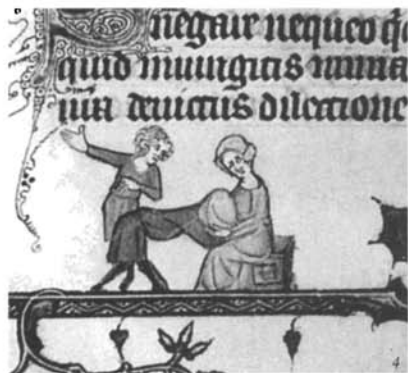 negare nequeo
quid iniungitis nimia
deuictus dilectione
4